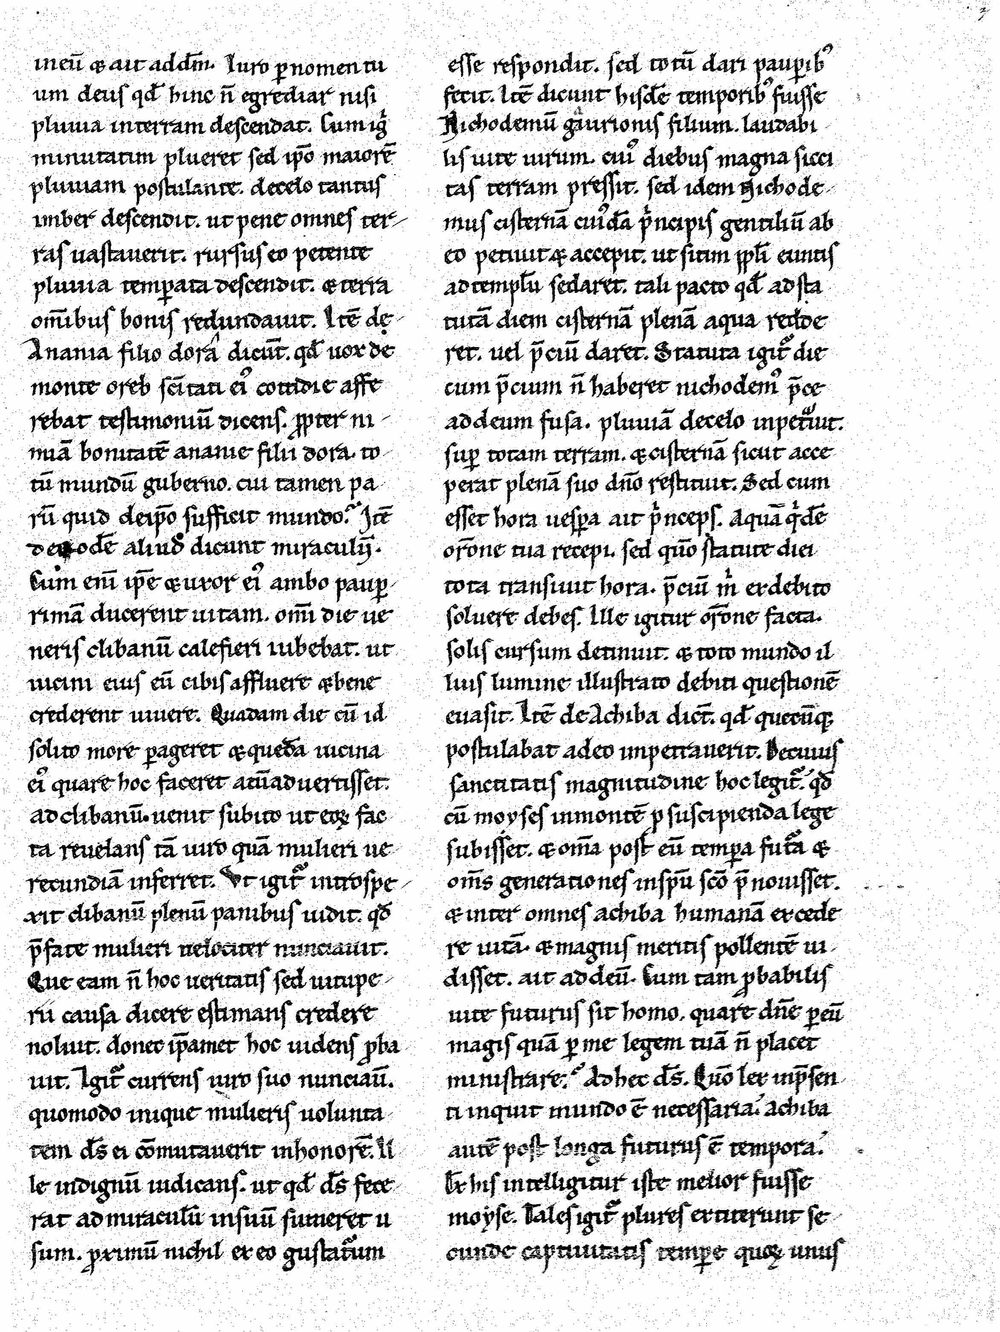 in eū ⁊ ait ad dm̄. Iuro ꝑ nomen tu
um deus qd̄ hinc n̄ egrediar nisi
pluuia in terram descendat. Cum igͥ
minutatim plueret sed ip̄o maiorē
pluuiam postulante. de celo tantus
imber descendit. ut pene omnes ter-
ras uastauerit. rursus eo petente
pluuia temꝑata descendit. ⁊ terra
om̄ibus bonis redundauit. Itē de
Anania filio dora dicūt. qd̄ uox de
monte oreb sc̄itati eiꝰ cottidie affe
rebat testimoniū dicens. ꝓpter ni-
miā bonitatē ananie filii dora. to-
tū mundū guberno. cui tamen pa-
rū quid de ip̄o sufficit mundo. Itē
de eodē aliud dicunt miraculū.
Cum eni ip̄e ⁊ uxor eiꝰ ambo pauꝑ-
rimā ducerent uitam. om̄i die ue
neris clibanū calefieri iubebat. ut
uicini eius eū cibis affluere ⁊ bene
crederent uiuere. Quadam die cū id
solito more ꝑageret ⁊ quedā uicina
eiꝰ quare hoc faceret aīaduertisset.
ad clibanū uenit subito ut eoꝝ fac
ta reuelans tā uiro quā mulieri ue-
recundiā inferret. Ut igit᷑ introspe-
xit clibanū plenū panibus uidit. qd̄
p̄fate mulieri uelociter nunciauit.
Que eam n̄ hoc ueritatis sed uitupe-
rii causa dicere estimans credere
noluit. donec ip̄amet hoc uidens ꝓba
uit. Igit᷑ currens uiro suo nunciau̅.
quomodo inique mulieris uolunta
tem ds̄ ei cōmutauerit in honorē. Il
le indignū iudicans. ut qd̄ ds̄ fece
rat ad miraculū in suū sumeret u
sum. proximū nichil ex eo gustatum
esse respondit. sed totū dari pauꝑibꝰ
fecit. Itē dicunt hisdē temporibꝰ fuisse
Nichodemū gaurionis filium. laudabi
lis uite uirum. cuiꝰ diebus magna sicci
tas terram pressit. sed idem Nichode-
mus cisternā cuiꝰdā pͥncipis gentiliū ab
eo petiuit ⁊ accepit. ut sitim ppl̄i euntis
ad templū sedaret. tali pacto qd̄ ad sta
tutā diem cisternā plenā aqua redde
ret. uel p̄ciū daret. Statuta igit᷑ die
cum p̄cium n̄ haberet nichodemꝰ p̄ce
ad deum fusa. pluuiā de celo inpetᵃuit.
suꝑ totam terram. ⁊ cisternā sicut acce
perat plenā suo dn̄o restituit. Sed cum
esset hora uesꝑa ait pͥnceps. Aquā qͥdē
or̄one tua recepi. sed qūo statute diei
tota transiuit hora. p̄ciū mͥ ex debito
soluere debes. Ille igitur or̄one facta.
solis cursum detinuit. ⁊ toto mundo il
lius lumine illustrato debiti questionē
euasit. Itē de Achiba dict̄. qd̄ quecūqꝫ
postulabat a deo impetrauerit. De cuius
sanctitatis magnitudine hoc legit᷑. qd̄
cū moyses in montē ꝓ suscipienda lege
subisset. ⁊ om̄ia post eū temꝑa fut᷑a ⁊
om̄s generationes in sp̄u sc̄o p̄nouisset.
⁊ inter omnes achiba humanā excede
re uitā. ⁊ magnis meritis pollentē ui-
disset. ait ad deū. Cum tam ꝓbabilis
uite futurus sit homo. quare dn̄e ꝑ eū
magis quā ꝑ me legem tuā n̄ placet
ministrare. Ad hec ds̄. Qūo lex inp̄sen
ti inquit mundo ē necessaria. achiba
autē post longa futurus ē tempora.
Ex his intelligitur iste melior fuisse
moyse. Tales igit᷑ plures extiterunt se-
cunde captiuitatis tempore quoꝝ unus